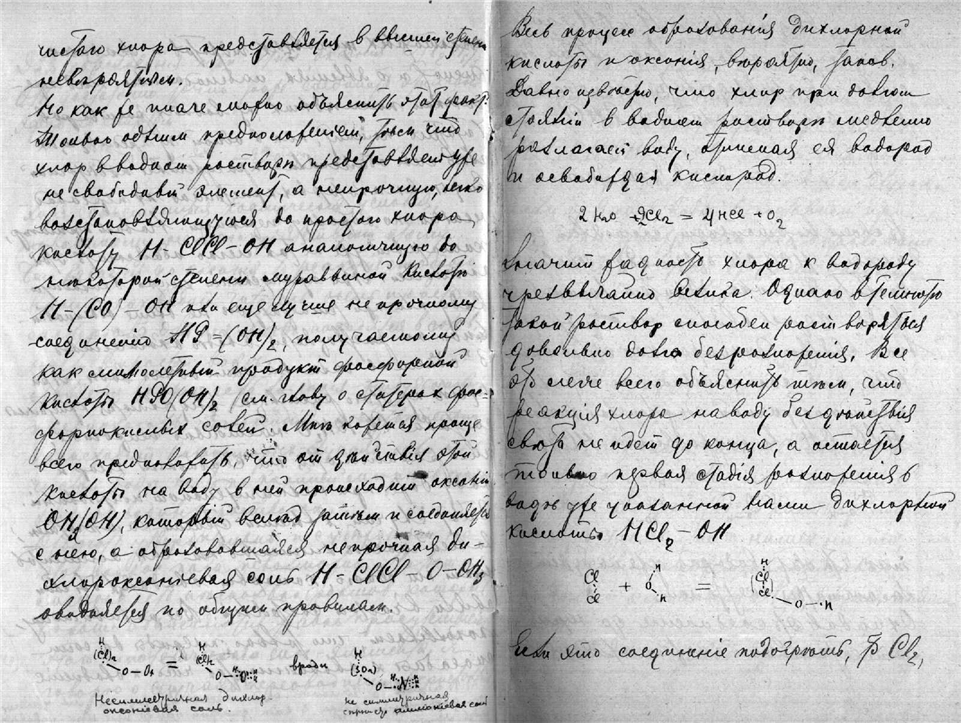 чистого хлора представляется в высшей степени
невероятным.
Но как же иначе можно объяснить этот факт?
Только одним предположением,
хлор в водном растворѣ представляет уже
не свободный элемент, а непрочную, легко
возстановляющуюся до простого хлора
кислоту H-ClCl-OH аналогичную до
некоторой степени муравьиной кислотѣ
H-(CO)-OH или еще лучше непрочному
соединению =(OH)2, получаемому
как мимолетный продукт фосфорной
кислоты (см. главу о эфирах фос-
форнокислых солей). Мнѣ кажется проще
всего предполагать, что от дѣйствія этой
кислоты на воду в ней происходит оксоній
OH3(OH), который вслѣд затѣм и соединяется
с нею, а образовавшаяся непрочная ди-
хлороксоніевая соль H-ClCl O-OH3
осаждается по общим правилам.
H
(Cl)n
O-O4
=
H
(Cl)n
O-
вроде
H
(SOn)
O-N
H
Несимметричная дихлор
оксоніевая соль.
не симметричная
аммоніевая соль
Весь процесс образованія дихлорной
кислоты и оксонія, вѣроятно, таков.
Давно извѣстно, что хлор при долгом
стояніи в водном растворѣ медленно
разлагает воду, отнимая ея водород
и освобождая кислород.
2H2O + 2Cl2 = 4HCl + O2
Значит жадность хлора к водороду
чрезвычайно велика. Однако в темнотѣ
такой раствор способен
довольно долго без разложенія. Все
это легче всего объяснить тѣм, что
реакція хлора на воду без дѣйствія
свѣта не идет до конца, а остается
только первая стадія разложенія в
видѣ уже указанной нами дихлорной
кислоты HCl2-OH
Cl
Cl
+
H
O
H
=
H
Cl
Cl
O-H
Если это соединение подогрѣть, Cl2,